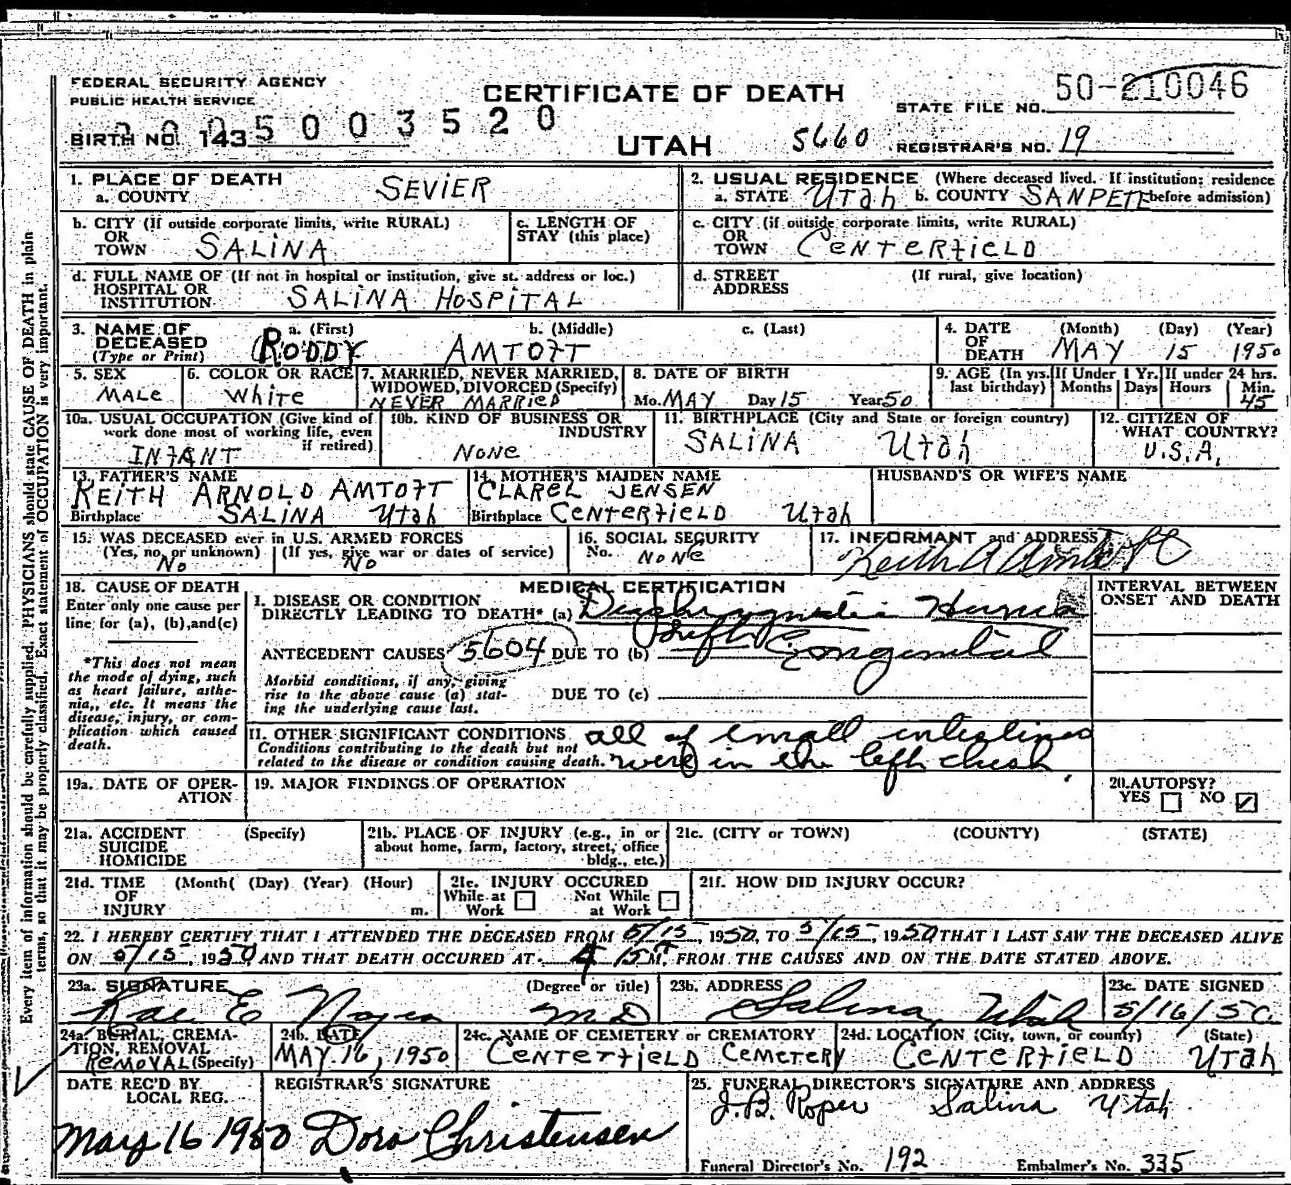 FEDERAL SECURITY AGENCY
PUBLIC HEALTH SERVICE
CERTIFICATE OF DEATH
STATE FILE NO. 50-210046
BIRTH NO. 143 5003520
UTAH
5660
REGISTRAR'S NO. 19
1. PLACE OF DEATH
a. COUNTY SEVIER
2. USUAL RESIDENCE (Where deceased lived. If institution: residence before admission)
a. STATE Utah b. COUNTY SANPETE
b. CITY (if outside corporate limits, write RURAL)
OR
TOWN SALiNA
c. LENGTH OF
STAY (this place)
c. CITY (if outside corporate limits, write RURAL)
OR
TOWN CENTERfiELD
d. FULL NAME OF (If not in hospital or institution, give st. address or loc.)
HOSPITAL OR
INSTITUTION SALiNA HOSPiTAL
d. STREET (If rural, give location)
ADDRESS
3. NAME OF a. (First) b. (Middle) c. (Last)
DECEASED
(Type or Print) RODDY AMTOfT
4. DATE (Month) (Day) (Year)
OF
DEATH MAY 15 1950
5. SEX
MALe
6. COLOR OR RACE
White
7. MARRIED, NEVER MARRIED,
WIDOWED, DIVORCED (Specify)
NEVER MARRiED
8. DATE OF BIRTH
Mo. MAY Day 15 Year 50
9. AGE (In yrs. last birthday) If Under 1 Yr. Months Days If under 24 hrs. Hours Min.
45
10a. USUAL OCCUPATION (Give kind of
work done most of working life, even
if retired)
INfANT
10b. KIND OF BUSINESS OR
INDUSTRY
NoNe
11. BIRTHPLACE (City and State or foreign country)
SALiNA Utah
12. CITIZEN OF
WHAT COUNTRY?
U.S.A.
13. FATHER'S NAME
KEITH ARNOLD AMTOfT
Birthplace SALiNA Utah
14. MOTHER'S MAIDEN NAME
CLAREL JENSEN
Birthplace CENTERfiELD Utah
HUSBAND'S OR WIFE'S NAME
15. WAS DECEASED ever in U.S. ARMED FORCES
(Yes, no, or unknown) (If yes, give war or dates of service)
No No
16. SOCIAL SECURITY
No. NoNe
17. INFORMANT and ADDRESS
Keith A Amtoft
18. CAUSE OF DEATH
Enter only one cause per
line for (a), (b), and (c)
*This does not mean
the mode of dying, such
as heart failure, asthe-
nia, etc. It means the
disease, injury, or com-
plication which caused
death.
MEDICAL CERTIFICATION
I. DISEASE OR CONDITION
DIRECTLY LEADING TO DEATH* (a) Diaphragmatic Hernia
left
ANTECEDENT CAUSES 5604 DUE TO (b) Congenital
Morbid conditions, if any, giving
rise to the above cause (a) stat-
ing the underlying cause last.
DUE TO (c)
II. OTHER SIGNIFICANT CONDITIONS all of small intestines
Conditions contributing to the death but not
related to the disease or condition causing death. were in the left chest
INTERVAL BETWEEN
ONSET AND DEATH
19a. DATE OF OPER-
ATION
19. MAJOR FINDINGS OF OPERATION
20. AUTOPSY?
YES NO
21a. ACCIDENT (Specify)
SUICIDE
HOMICIDE
21b. PLACE OF INJURY (e.g., in or
about home, farm, factory, street, office
bldg., etc.)
21c. (CITY or TOWN) (COUNTY) (STATE)
21d. TIME (Month( (Day) (Year) (Hour)
OF
INJURY m.
21e. INJURY OCCURED
While at Work Not While at Work
21f. HOW DID INJURY OCCUR?
22. I HEREBY CERTIFY THAT I ATTENDED THE DECEASED FROM 5/15, 1950, TO 5/15, 1950 THAT I LAST SAW THE DECEASED ALIVE
ON 5/15, 1950 AND THAT DEATH OCCURED AT 4 15 M, FROM THE CAUSES AND ON THE DATE STATED ABOVE.
23a. SIGNATURE (Degree or title)
Rae E Noyes M D
23b. ADDRESS
Salina, Utah
23c. DATE SIGNED
5/16/50
24a. BURIAL, CREMA-
TION, REMOVAL
REMOVAL (Specify)
24b. DATE
MAY 16, 1950
24c. NAME OF CEMETERY or CREMATORY
CENTERfiELD CEMETERY
24d. LOCATION (City, town, or county) (State)
CENTERfiELD UTah
DATE REC'D BY
LOCAL REG.
May 16 1950
REGISTRAR'S SIGNATURE
Dora Christensen
25. FUNERAL DIRECTOR'S SIGNATURE AND ADDRESS
J.B. Roper Salina Utah
Funeral Director's No. 192 Embalmer's No. 335
Every item of information should be carefully supplied. PHYSICIANS should state CAUSE OF DEATH in plain
terms, so that it may be properly classified. Exact statement of OCCUPATION is very important.